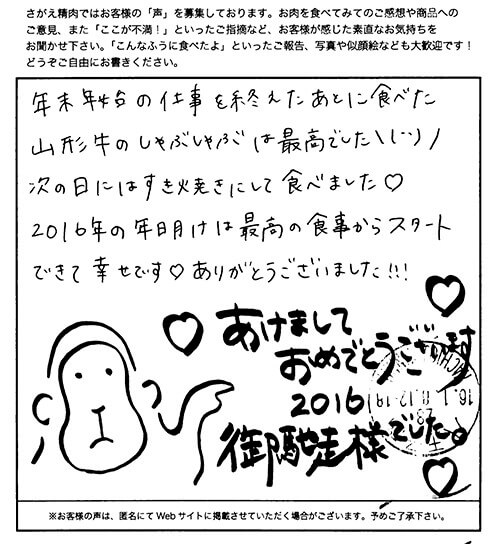 さがえ精肉ではお客様の「声」を募集しております。お肉を食べてみてのご感想や商品への
ご意見、また「ここが不満！」といったご指摘など、お客様が感じた素直なお気持ちを
お聞かせ下さい。「こんなふうに食べたよ」といったご報告、写真や似顔絵なども大歓迎です！
どうぞご自由にお書きください。
年末年始の仕事を終えたあとに食べた
山形牛のしゃぶしゃぶは最高でした\(^^)/
次の日にはすき焼きにして食べました♡
2016年の年明けは最高の食事からスタート
できて幸せです♡ありがとうございました!!!
♡あけまして♡
おめでとうございます
2016
御馳走様でした。
♡
※お客様の声は、匿名にてWebサイトに掲載させていただく場合がございます。予めご了承下さい。